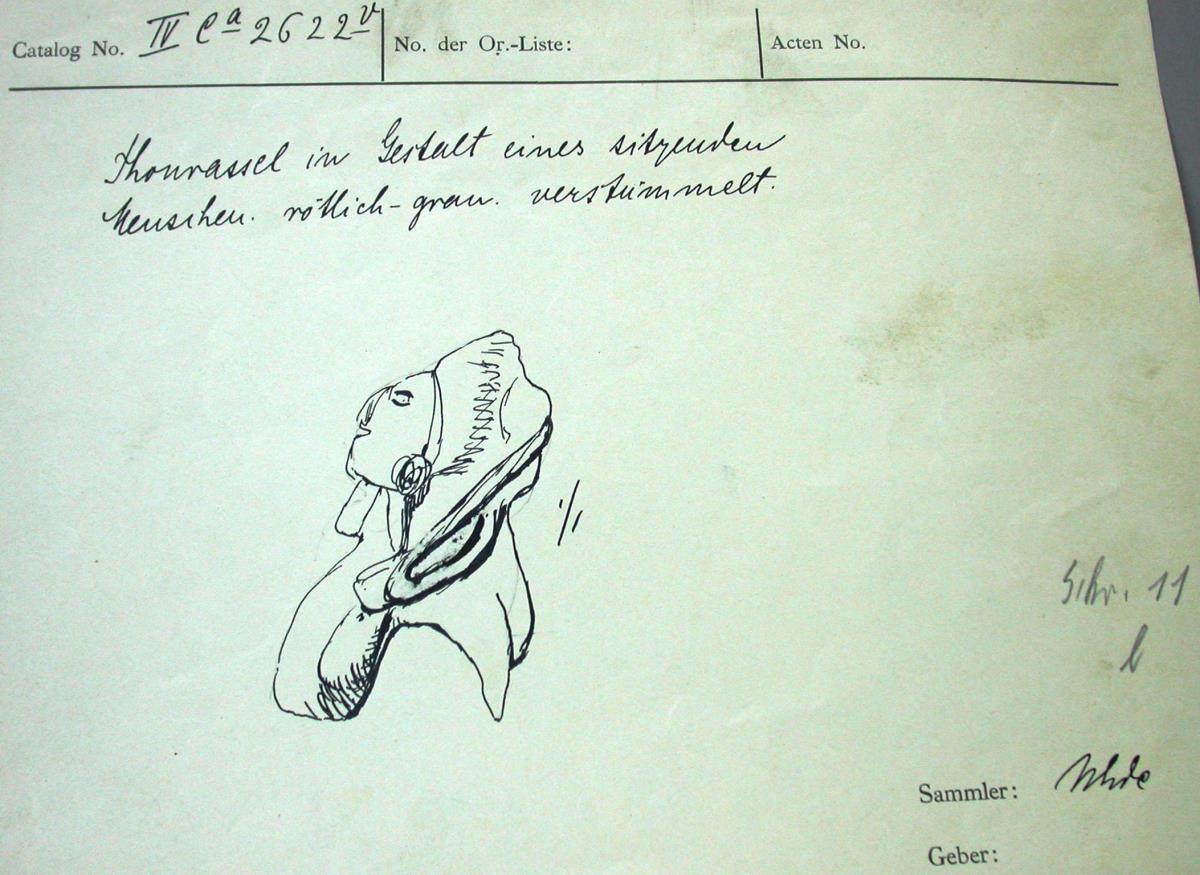 Catalog No. IV Ca 2622 v
No. der Or.-Liste:
Acten No.
Thonrassel in Gestalt eines sitzenden
Menschen. rötlich-grau. verstümmelt.
1/1
Schr. 11
b
Sammler: Uhde
Geber: